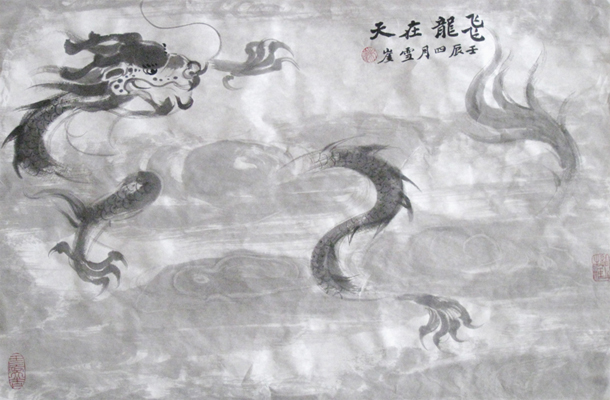 飛龍在天
壬辰四月雪崖